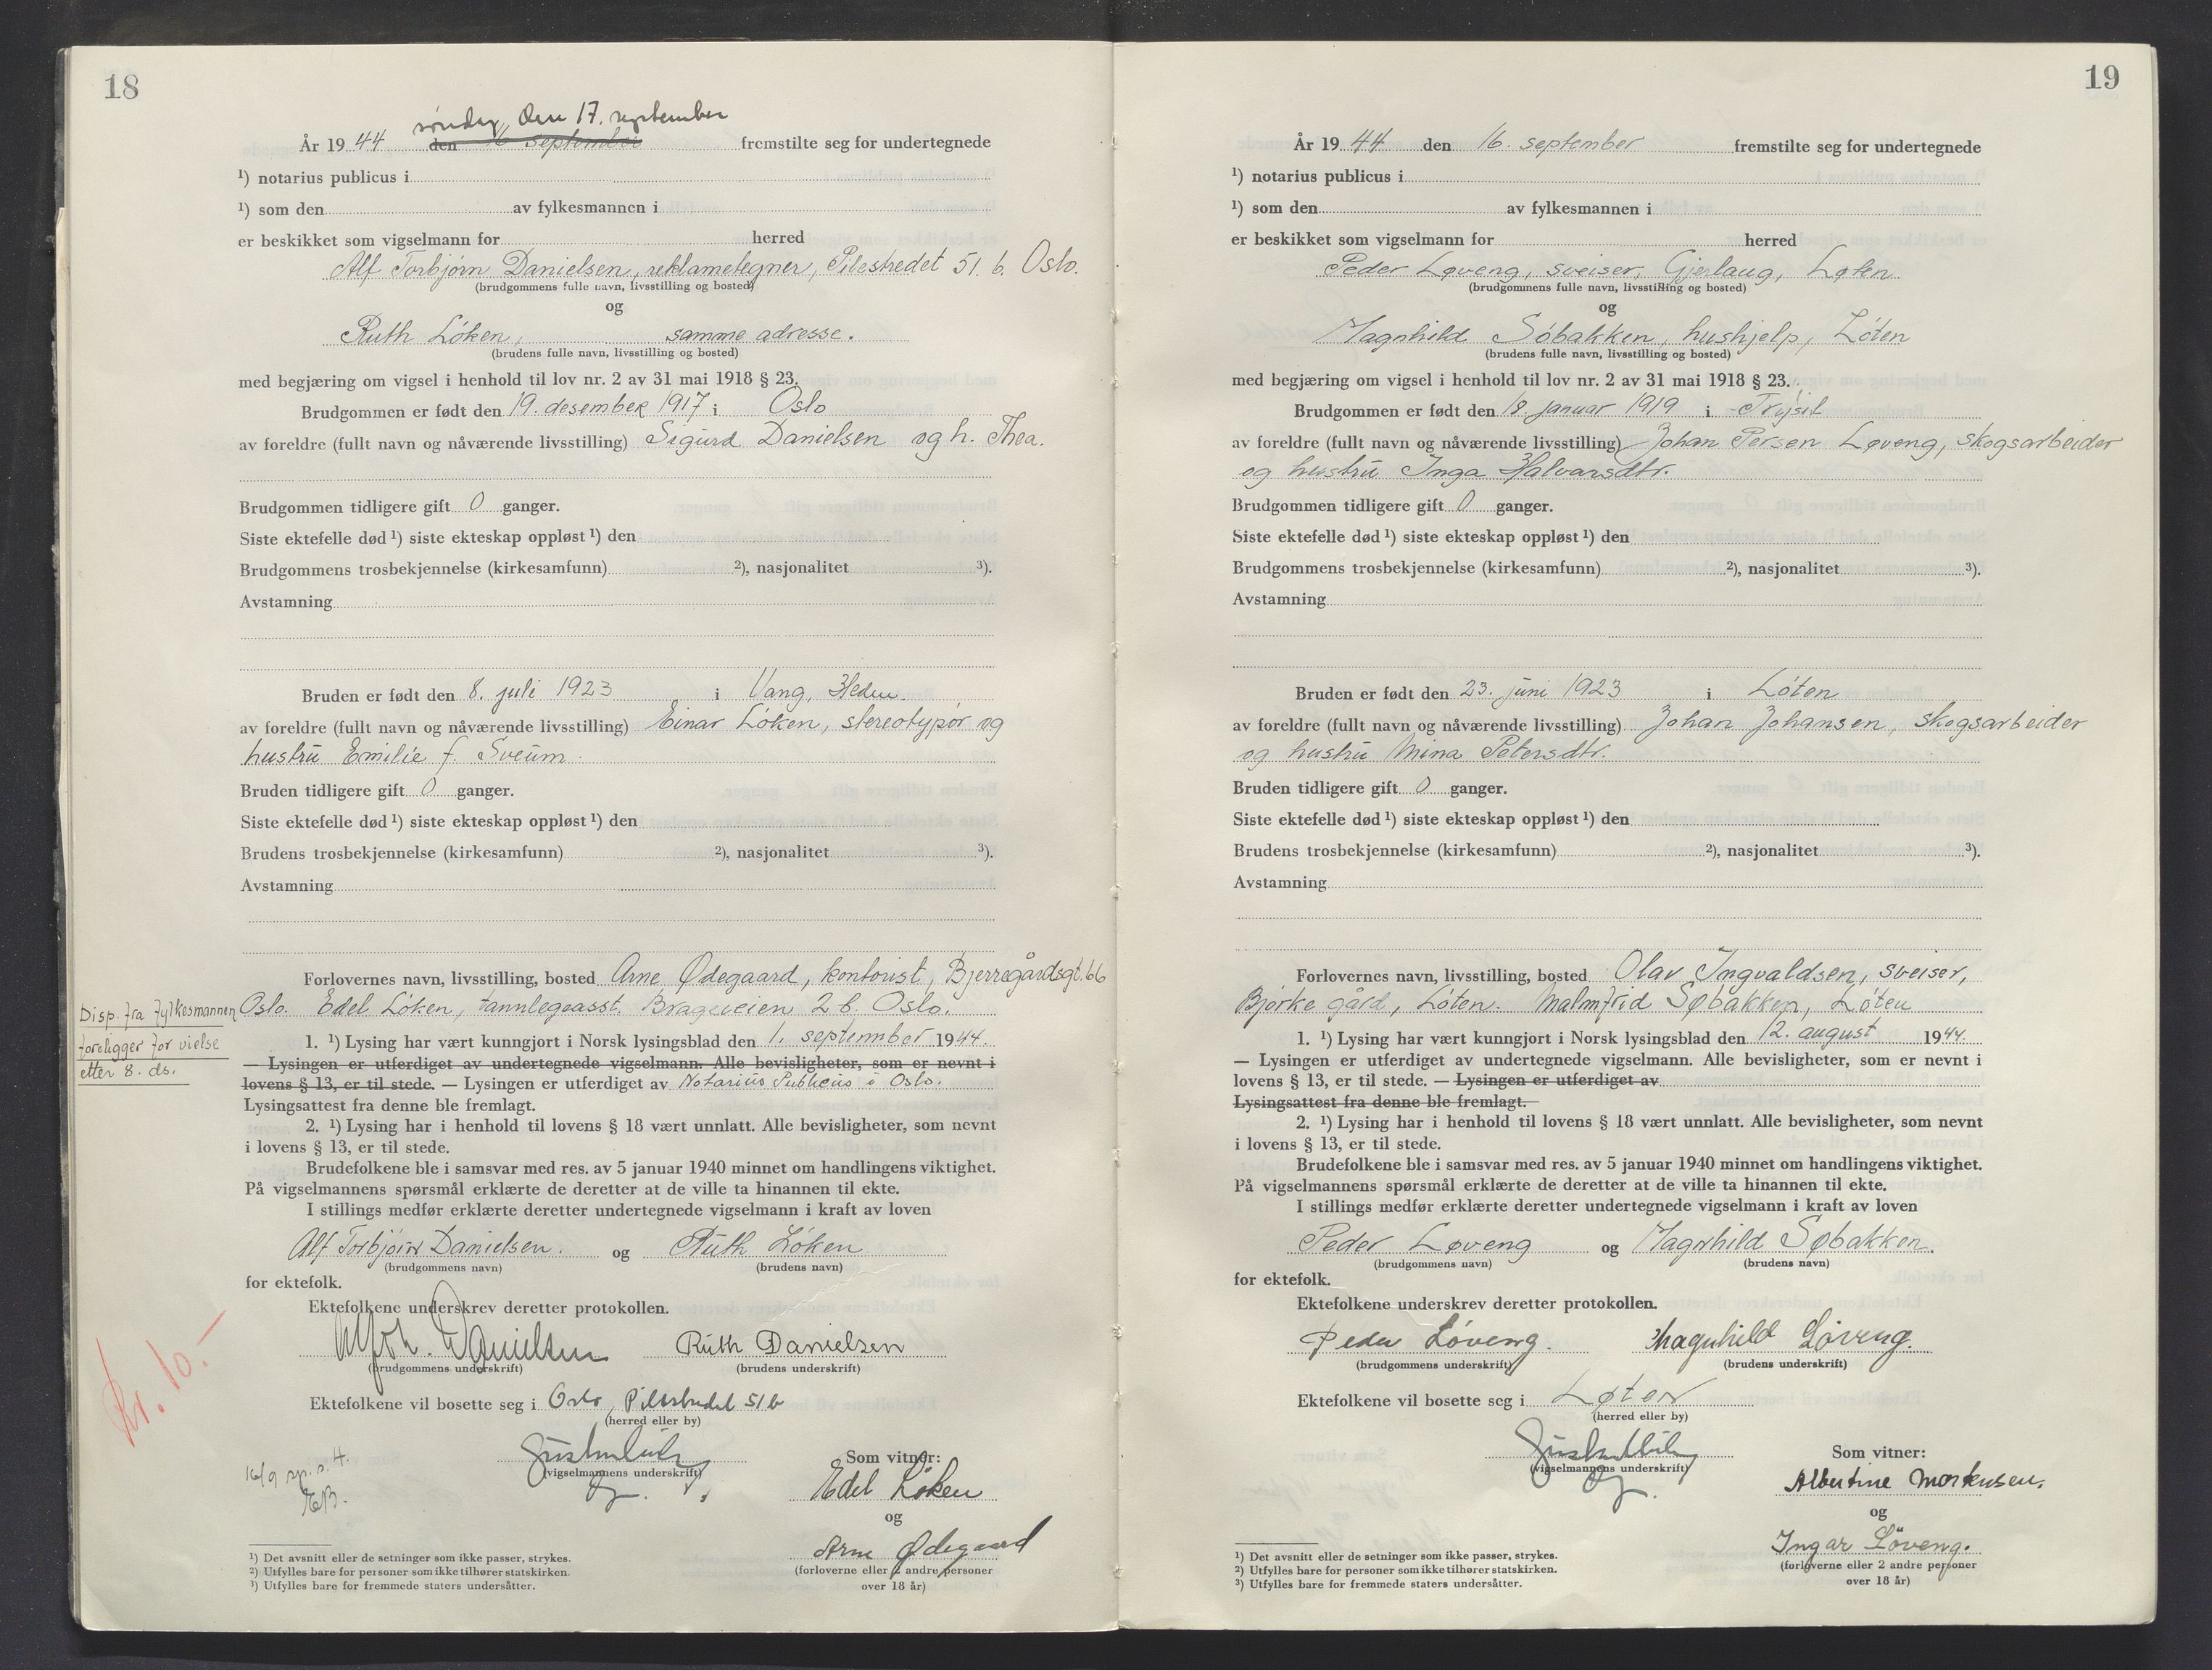 18
søndag, den 17. september
År 19 44 den 16 september fremstilte seg for undertegnede
¹) notarius publicus i
¹) som den av fylkesmannen i
er beskikket som vigselmann for herred
Alf Torbjørn Danielsen, reklametegner, Pilestredet 51. b. Oslo.
(brudgommens fulle navn, livsstilling og bosted)
og
Ruth Löken, samme adresse.
(brudens fulle navn, livsstilling og bosted)
med begjæring om vigsel i henhold til lov nr. 2 av 31 mai 1918 § 23.
Brudgommen er født den 19. desember 1917 i Oslo
av foreldre (fullt navn og nåværende livsstilling) Sigurd Danielsen og h. Thea.
Brudgommen tidligere gift 0 ganger.
Siste ektefelle død ¹) siste ekteskap oppløst ¹) den
Brudgommens trosbekjennelse (kirkesamfunn) ²), nasjonalitet ³).
Avstamning
Bruden er født den 8. juli 1923 i Vang, Hedm.
av foreldre (fullt navn og nåværende livsstilling) Einar Löken, stereotypör og
hustrü Emilie f. Sveum.
Bruden tidligere gift 0 ganger.
Siste ektefelle død ¹) siste ekteskap oppløst ¹) den
Brudens trosbekjennelse (kirkesamfunn) ²), nasjonalitet ³).
Avstamning
Forlovernes navn, livsstilling, bosted Arne Ødegaard, kontorist, Bjerregårdsgt. 66
Oslo. Edel Löken, tannlegeasst. Brageveien 2 b. Oslo.
Disp. fra fylkesmannen
foreligger for vielse
etter 8. ds.
1. ¹) Lysing har vært kunngjort i Norsk lysingsblad den 1. september 1944.
— Lysingen er utferdiget av undertegnede vigselmann. Alle bevisligheter, som er nevnt i
lovens § 13, er til stede. — Lysingen er utferdiget av Notarius Publicus i Oslo.
Lysingsattest fra denne ble fremlagt.
2. ¹) Lysing har i henhold til lovens § 18 vært unnlatt. Alle bevisligheter, som nevnt
i lovens § 13, er til stede.
Brudefolkene ble i samsvar med res. av 5 januar 1940 minnet om handlingens viktighet.
På vigselmannens spørsmål erklærte de deretter at de ville ta hinannen til ekte.
I stillings medfør erklærte deretter undertegnede vigselmann i kraft av loven
Alf Torbjörn Danielsen. og Ruth Löken
(brudgommens navn) (brudens navn)
for ektefolk.
Ektefolkene underskrev deretter protokollen.
Danielsen Ruth Danielsen
(brudgommens underskrift) (brudens underskrift)
Kr. 10.—
Ektefolkene vil bosette seg i Oslo, Pilestredet 51 b
(herred eller by)
16/9
(vigselmannens underskrift)
Som vitner:
Edel Løken
og
Arne Ødegaard
(forloverne eller 2 andre personer
over 18 år)
¹) Det avsnitt eller de setninger som ikke passer, strykes.
²) Utfylles bare for personer som ikke tilhører statskirken.
³) Utfylles bare for fremmede staters undersåtter.
19
År 19 44 den 16. september fremstilte seg for undertegnede
¹) notarius publicus i
¹) som den av fylkesmannen i
er beskikket som vigselmann for herred
Peder Løveng, sveiser, Gjerlaug, Løten
(brudgommens fulle navn, livsstilling og bosted)
og
Magnhild Söbakken, hushjelp, Löten
(brudens fulle navn, livsstilling og bosted)
med begjæring om vigsel i henhold til lov nr. 2 av 31 mai 1918 § 23.
Brudgommen er født den 18. januar 1919 i Trysil
av foreldre (fullt navn og nåværende livsstilling) Johan Persen Løveng, skogsarbeider
og hustrü Inga Halvarsdtr.
Brudgommen tidligere gift 0 ganger.
Siste ektefelle død ¹) siste ekteskap oppløst ¹) den
Brudgommens trosbekjennelse (kirkesamfunn) ²), nasjonalitet ³).
Avstamning
Bruden er født den 23. juni 1923 i Löten
av foreldre (fullt navn og nåværende livsstilling) Johan Johansen, skogsarbeider
og hustrü Mina Petersdtr.
Bruden tidligere gift 0 ganger.
Siste ektefelle død ¹) siste ekteskap oppløst ¹) den
Brudens trosbekjennelse (kirkesamfunn) ²), nasjonalitet ³).
Avstamning
Forlovernes navn, livsstilling, bosted Olav Ingvaldsen, sveiser,
Björke gård, Löten. Malmfrid Søbakken, Løten
1. ¹) Lysing har vært kunngjort i Norsk lysingsblad den 12. august 1944.
— Lysingen er utferdiget av undertegnede vigselmann. Alle bevisligheter, som er nevnt i
lovens § 13, er til stede. — Lysingen er utferdiget av
Lysingsattest fra denne ble fremlagt.
2. ¹) Lysing har i henhold til lovens § 18 vært unnlatt. Alle bevisligheter, som nevnt
i lovens § 13, er til stede.
Brudefolkene ble i samsvar med res. av 5 januar 1940 minnet om handlingens viktighet.
På vigselmannens spørsmål erklærte de deretter at de ville ta hinannen til ekte.
I stillings medfør erklærte deretter undertegnede vigselmann i kraft av loven
Peder Løveng og Magnhild Søbakken.
(brudgommens navn) (brudens navn)
for ektefolk.
Ektefolkene underskrev deretter protokollen.
Peder Löveng. Magnhild Löveng.
(brudgommens underskrift) (brudens underskrift)
Ektefolkene vil bosette seg i Løten
(herred eller by)
(vigselmannens underskrift)
Som vitner:
Albertine Mortensen.
og
Ingar Löveng.
(forloverne eller 2 andre personer
over 18 år)
¹) Det avsnitt eller de setninger som ikke passer, strykes.
²) Utfylles bare for personer som ikke tilhører statskirken.
³) Utfylles bare for fremmede staters undersåtter.